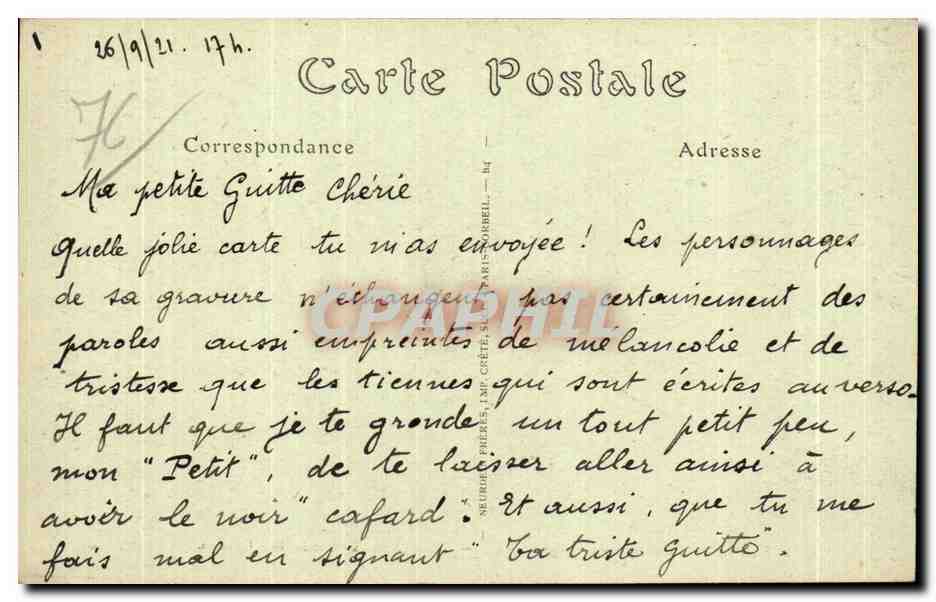 26/9/21. 17h.
Carte Postale
76
Correspondance
Adresse
Ma petite Guitte Chérie
Quelle jolie carte tu m'as envoyée! Les personnages
de sa gravure n'échangent pas certainement des
paroles aussi empreintes de mélancolie et de
tristesse que les tiennes qui sont écrites au verso.
Il faut que je te gronde un tout petit peu,
mon "Petit", de te laisser aller ainsi à
avoir le noir "cafard". Et aussi, que tu me
fais mal en signant "Ta triste Guitte".
NEURDEIN FRÈRES, IMP. CRÉTÉ, SUCC. PARIS-CORBEIL.
CPAPHIL